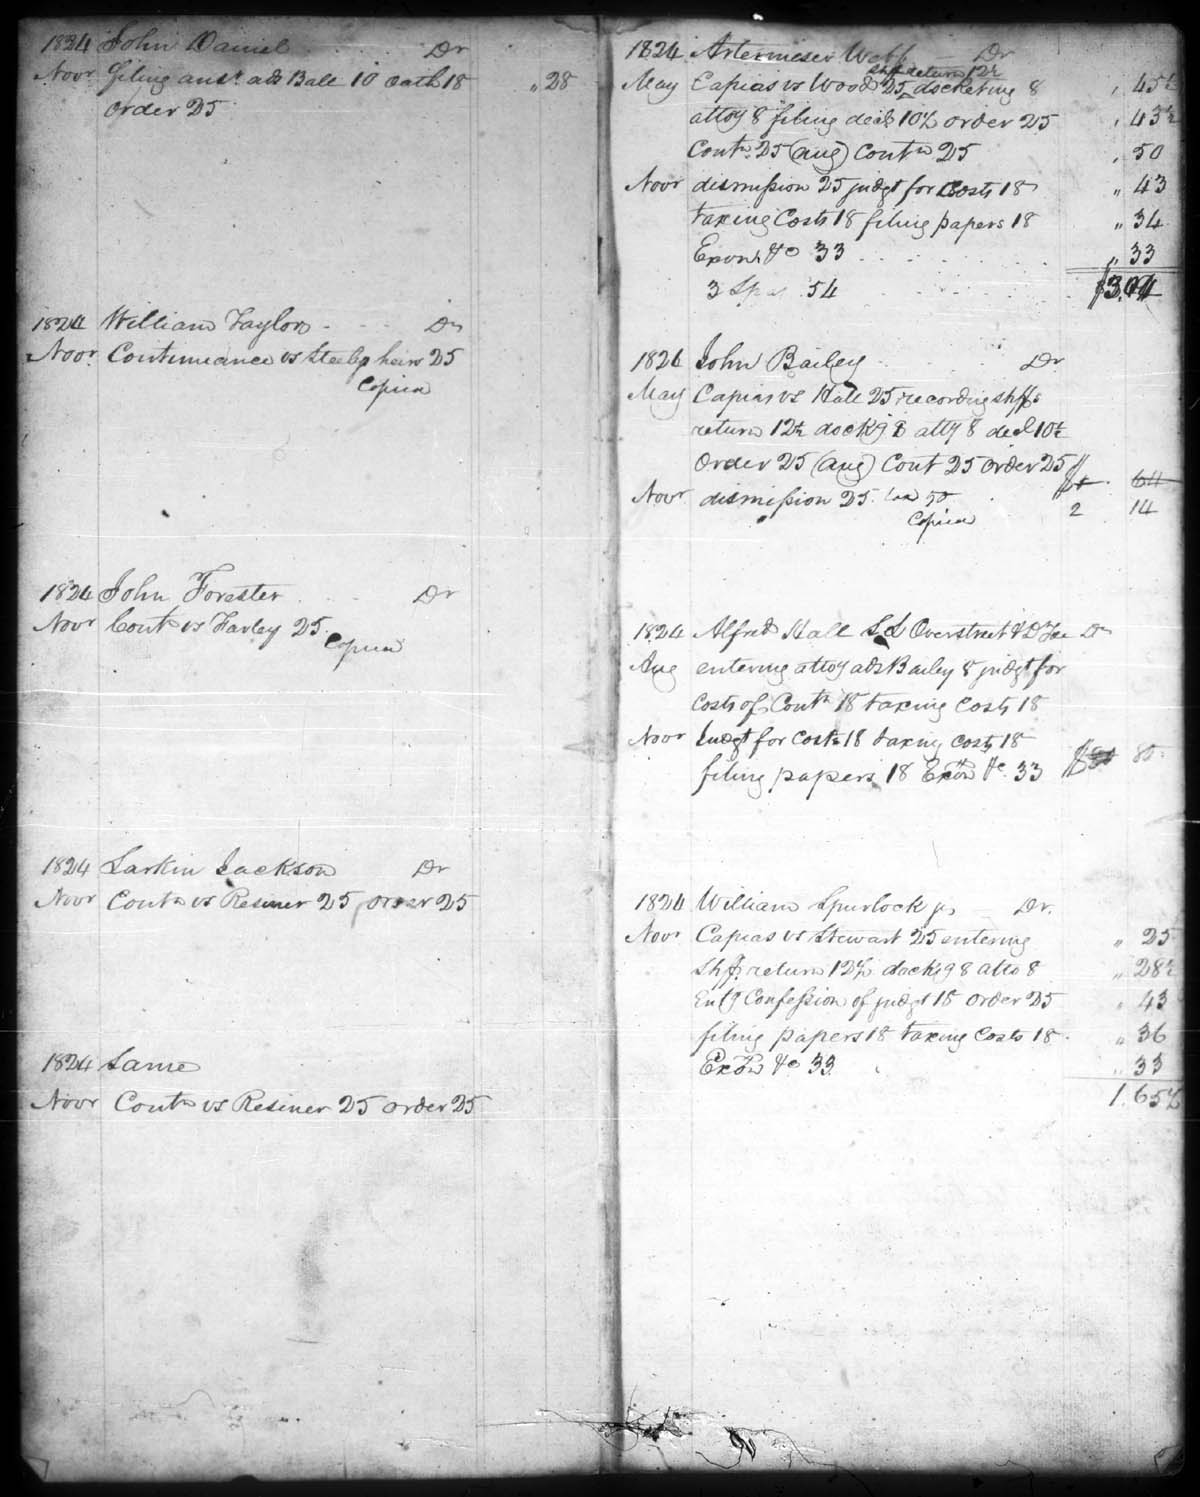 1824 John Daniel Dr
Novr filing ansr. ads Ball 10 oath 18 " 28
order 25
1824 William Taylor Dr
Novr Continuance vs Steele heirs 25
Copied
1824 John Forester Dr
Novr Contn vs Farley 25
Copied
1824 Larkin Jackson Dr
Novr Contn vs Resiner 25 order 25
1824 Same
Novr Contn vs Resiner 25 order 25
1824 Artemeser Webb Dr
shff return 12½
May Capias vs Wood 25 docketing 8 " 45½
attoy 8 filing decl 10½ order 25 " 43½
Contn. 25 (aug) Contn 25 " 50
Novr dismission 25 judgt for Costs 18 " 43
taxing Costs 18 filing papers 18 " 34
Exon &c 33 " 33
3 Spas 54 $3.04
1824 John Bailey Dr
May Capias vs Hall 25 recording shffs
return 12½ dockg 8 atty 8 decl 10½
order 25 (aug) Cont 25 order 25
$1 64
Novr dismission 25 tax 50 2 14
Copied
1824 Alfred Hall S L Overstreet & D Dr
Aug entering attoy ads Bailey 8 judgt for
Costs of Contn 18 taxing Costs 18
Novr Judgt for Costs 18 taxing Costs 18
filing papers 18 Exon &c 33 $
1824 William Spurlock jr Dr.
Novr Capias vs Stewart 25 entering " 25
Shff return 12½ dockg 8 atto 8 " 28½
Entg Confession of judgt 18 order 25 " 43
filing papers 18 taxing Costs 18 " 36
Exon &c 33 " 33
1.65½